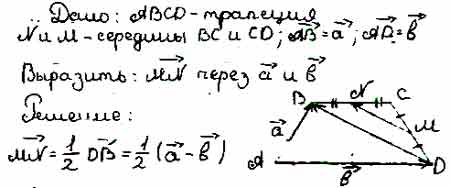 Дано: ABCD-трапеция
N и M-середины BC и CD; \vec{AB}=\vec{a}; \vec{AD}=\vec{b}
Выразить: \vec{MN} через \vec{a} и \vec{b}
Решение:
\vec{MN}=\frac{1}{2}\vec{DB}=\frac{1}{2}(\vec{a}-\vec{b})
B N C
\vec{a} M
A \vec{b} D